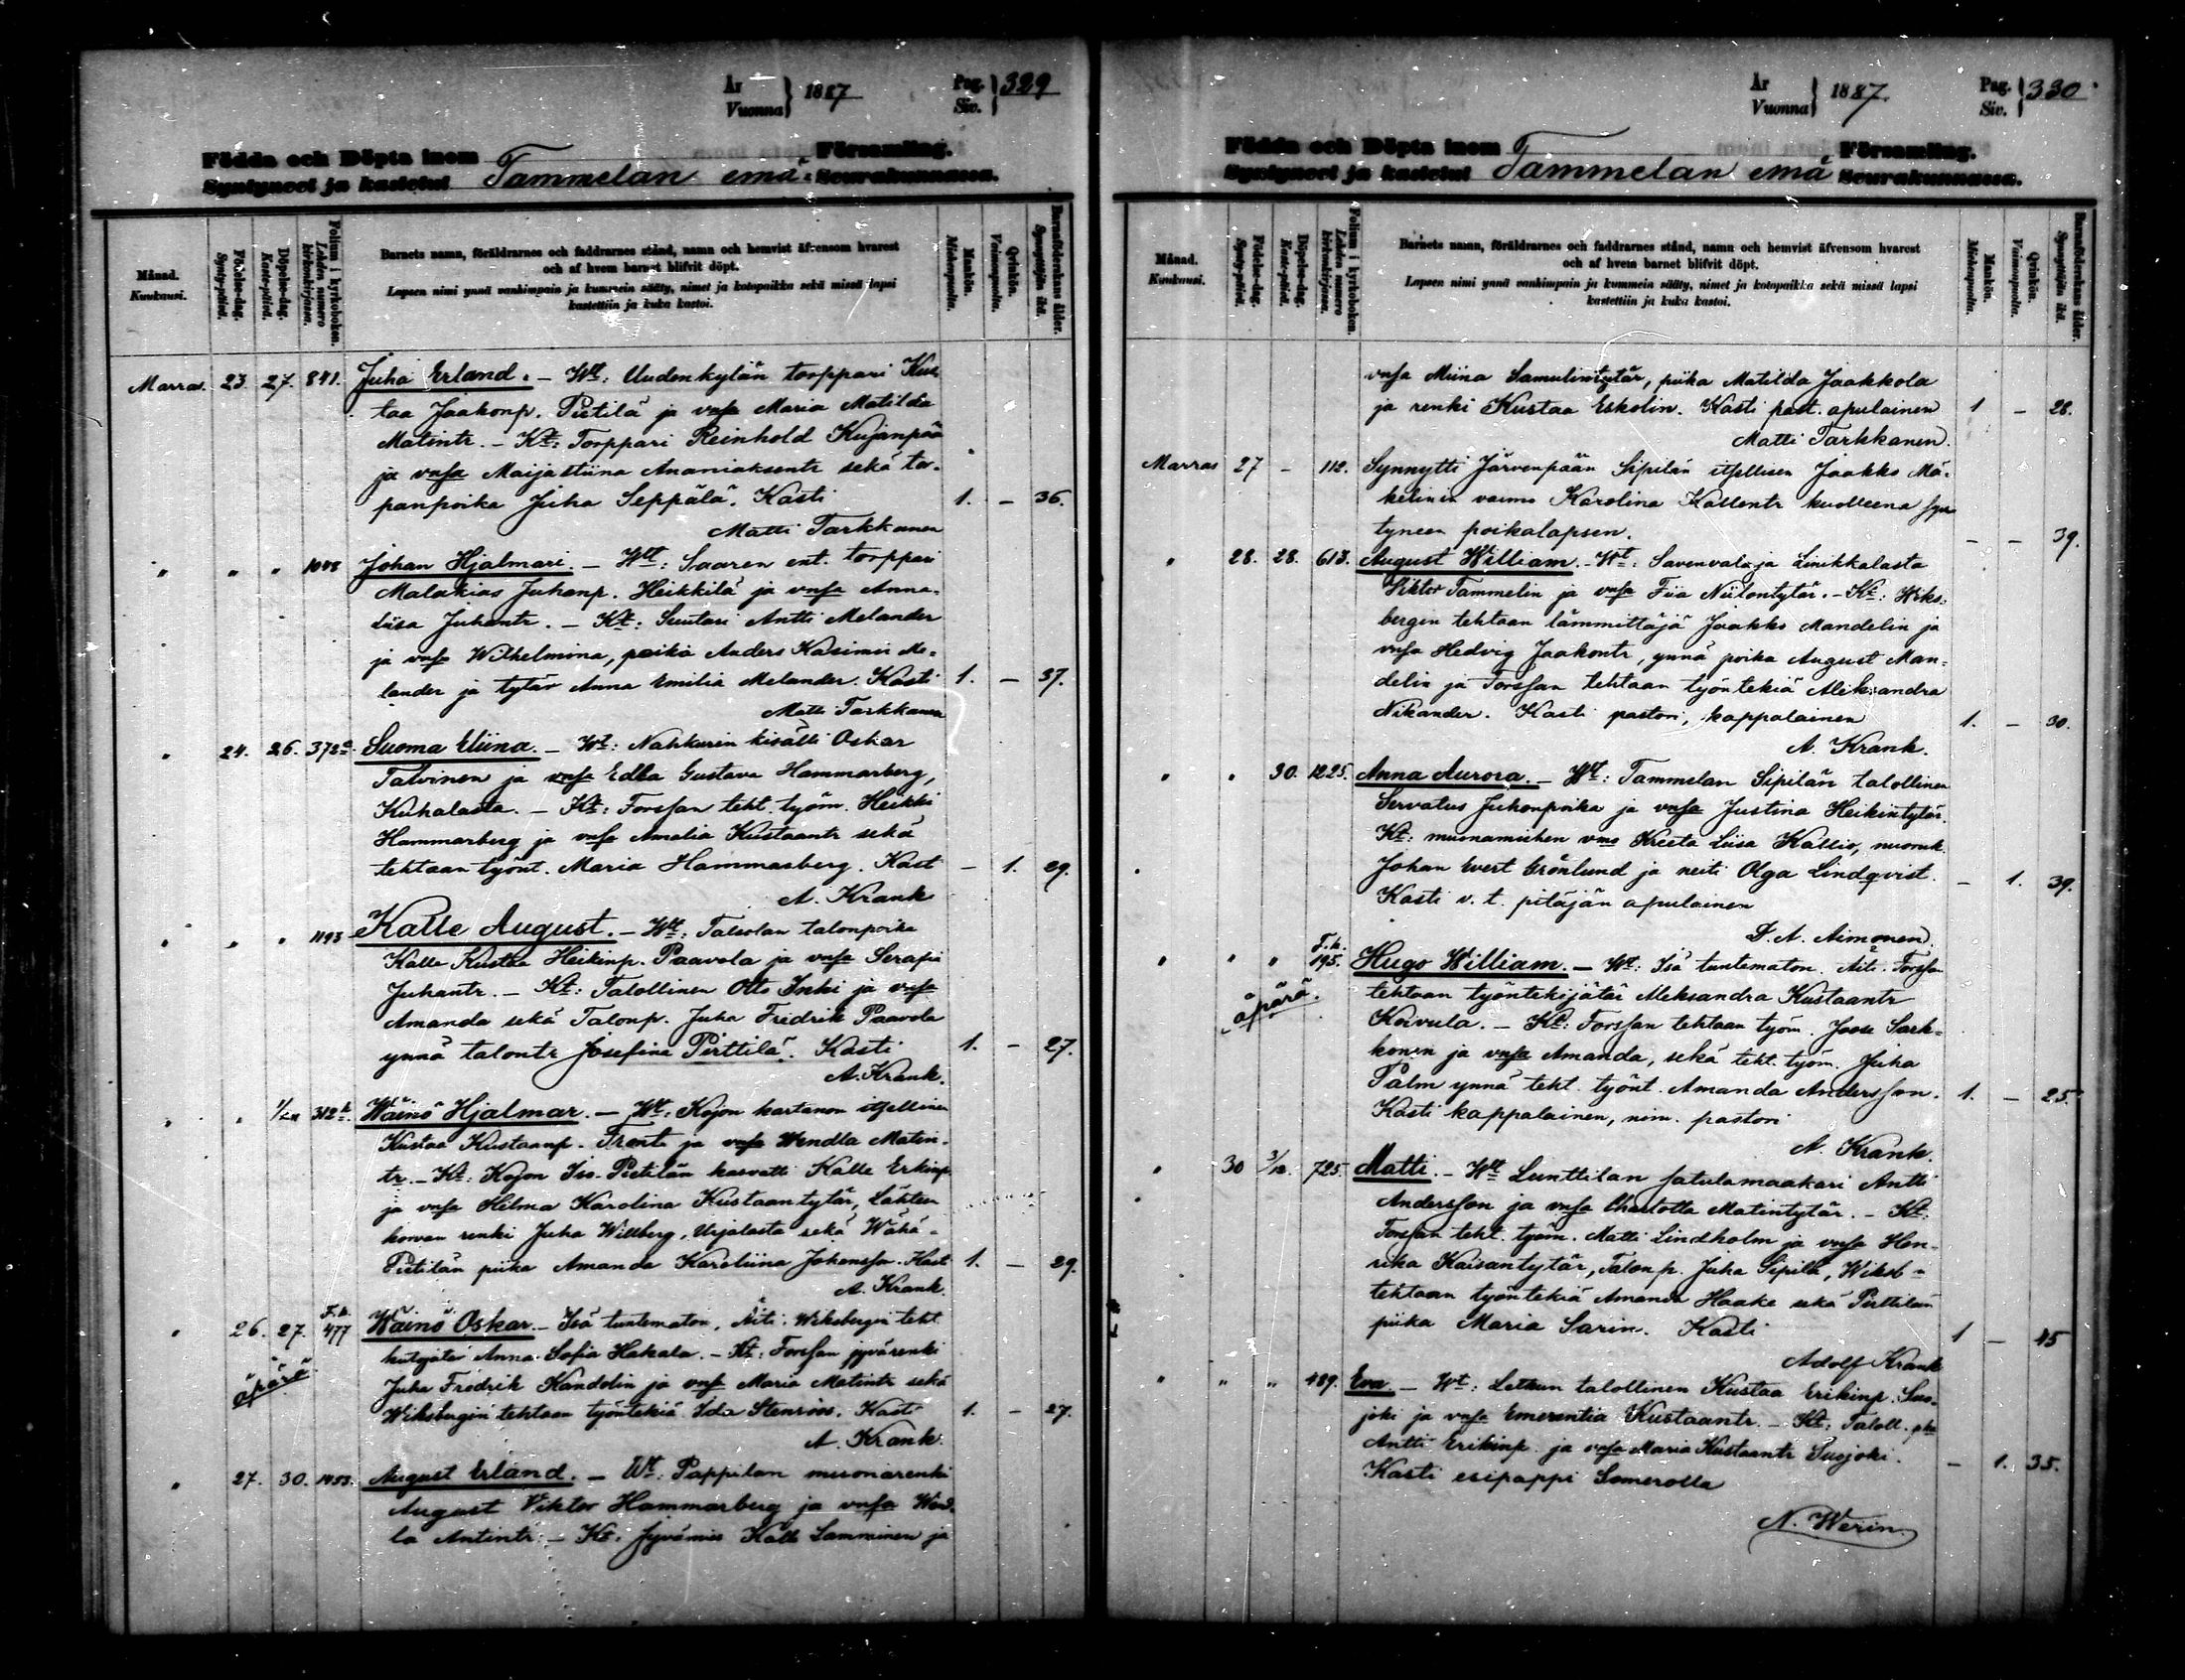 År
Vuonna } 1887
Pag.
Siv. } 329
Födda och Döpta inom Församling.
Syntyneet ja kastetut Tammelan emä Seurakunnassa.
Månad.
Kuukausi.
Födelse-dag.
Synty-päivä.
Döpelse-dag.
Kaste-päivä.
Folium i kyrkoboken.
Lehden numero kirkonkirjassa.
Barnets namn, föräldrarnes och faddrarnes stånd, namn och hemvist äfvensom hvarest
och af hvem barnet blifvit döpt.
Lapsen nimi ynnä vanhimpain ja kummein sääty, nimet ja kotopaikka sekä missä lapsi
kastettiin ja kuka kastoi.
Mankön.
Miehenpuolia.
Qvinkön.
Vaimonpuolia.
Barnaföderskans ålder.
Synnyttäjän ikä.
Marras. 23. 27. 841. Juha Erland. – Wt: Uudenkylän torppari Kus
taa Jaakonp. Pietilä ja vmsa Maria Matilda
Matintr. – Kt: Torppari Reinhold Kujanpää
ja vmsa Maijastiina Ananiaksentr sekä tor-
panpoika Juha Seppälä. Kasti 1. – 36.
Matti Tarkkanen
" " " 1048 Johan Hjalmari. – Wt: Saaren ent. torppari
Malakias Juhanp. Heikkilä ja vmsa Anna-
Liisa Juhantr. – Kt: Suutari Antti Melander
ja vmsa Wilhelmina, poika Anders Kasimir Me-
lander ja tytär Anna Emilia Melander. Kasti 1. – 37.
Matti Tarkkanen
" 24. 26. 372 Suoma Eliina. – Wt: Nahkurin kisälli Oskar
Talvinen ja vmsa Edla Gustava Hammarberg,
Kuhalasta. – Kt: Forssan teht. työm. Heikki
Hammarberg ja vmsa Amalia Kustaantr sekä
tehtaan työnt. Maria Hammarberg. Kast – 1. 29.
A. Krank
" " " 1193 Kalle August. – Wt: Talsolan talonpoika
Kalle Kustaa Heikinp. Paavola ja vmsa Serafia
Juhantr. – Kt: Talollinen Otto Inki ja vmsa
Amanda sekä Talonp. Juha Fredrik Paavola
ynnä talontr Josefina Pirttilä. Kasti 1. – 27.
A. Krank.
" " 1/12 312 Wäinö Hjalmar. – Wt: Kojon kartanon itsellinen
Kustaa Kustaanp. Frent ja vmsa Wendla Matin-
tr. – Kt: Kojon Iso-Pietilän kasvatti Kalle Erkinp.
ja vmsa Hilma Karolina Kustaantytär, Lähteen
korvan renki Juha Willberg, Urjalasta sekä Wähä-
Pietilän piika Amanda Karoliina Johansson. Kast 1. – 29.
A. Krank.
" 26. 27. F.k. 477 Wäinö Oskar. – Isä tuntematon. Äiti: Wiksbergin teht.
kutojatar Anna Sofia Hakala. – Kt: Forssan jyvärenki
äpärä Juha Fredrik Kandolin ja vmsa Maria Matintr sekä
Wiksbergin tehtaan työntekiä Ida Stenroos. Kasti 1. – 27.
A. Krank.
" 27. 30. 1453. August Erland. – Wt: Pappilan muonarenki
August Viktor Hammarberg ja vmsa Wend-
la Antintr. – Kt. Jyvämies Kalle Lamminen ja
År
Vuonna } 1887.
Pag.
Siv. } 330
Födda och Döpta inom Församling.
Syntyneet ja kastetut Tammelan emä Seurakunnassa.
Månad.
Kuukausi.
Födelse-dag.
Synty-päivä.
Döpelse-dag.
Kaste-päivä.
Folium i kyrkoboken.
Lehden numero kirkonkirjassa.
Barnets namn, föräldrarnes och faddrarnes stånd, namn och hemvist äfvensom hvarest
och af hvem barnet blifvit döpt.
Lapsen nimi ynnä vanhimpain ja kummein sääty, nimet ja kotopaikka sekä missä lapsi
kastettiin ja kuka kastoi.
Mankön.
Miehenpuolia.
Qvinkön.
Vaimonpuolia.
Barnaföderskans ålder.
Synnyttäjän ikä.
vmsa Miina Samulintytär, piika Matilda Jaakkola
ja renki Kustaa Eskolin. Kasti past. apulainen 1 – 28.
Matti Tarkkanen.
Marras 27 – 112. Synnytti Järvenpään Sipilän itsellisen Jaakko Mä-
kelinin vaimo Karolina Kallentr kuolleena syn
tyneen poikalapsen. – – 39.
" 28. 28. 613. August William. – Wt: Savenvalaja Linikkalasta
Viktor Tammelin ja vmsa Fiia Niilontytär. – Kt: Wiks-
bergin tehtaan lämmittäjä Jaakko Mandelin ja
vmsa Hedvig Jaakontr, ynnä poika August Man-
delin ja Forssan tehtaan työntekiä Aleksandra
Nikander. Kasti pastori, kappalainen 1. – 30.
A. Krank.
" " 30. 1225. Anna Aurora. – Wt: Tammelan Sipilän talollinen
Servatus Juhonpoika ja vmsa Justina Heikintytär.
Kt: muonamiehen vmo Kreeta Liisa Kallio, nuoruk.
Johan Evert Grönlund ja neiti Olga Lindqvist. – 1. 39.
Kasti v. t. pitäjän apulainen
D. A. Aimonen.
" " " F.k. 195. Hugo William. – Wt: Isä tuntematon. Äiti: Forssan
äpärä. tehtaan työntekijätär Aleksandra Kustaantr
Koivula. – Kt: Forssan tehtaan työm. Joose Sark-
konen ja vmsa Amanda, sekä teht. työm. Juha
Palm ynnä teht. työnt. Amanda Andersson. 1. – 25.
Kasti kappalainen, nim. pastori
A. Krank.
" 30 3/12. 725. Matti. – Wt Lunttilan satulamaakari Antti
Andersson ja vmsa Charlotta Matintytär. – Kt:
Forssan teht. työm. Matti Lindholm ja vmsa Hen-
rika Kaisantytär, Talonp. Juha Sipilä, Wiksb-
tehtaan työntekiä Amanda Haake sekä Pirttilän
piika Maria Sarin. Kasti 1 – 45
Adolf Krank
" " " 489. Eva. – Wt: Letkun talollinen Kustaa Erikinp. Suo-
joki ja vmsa Emerentia Kustaantr. – Kt: Taloll. pka
Antti Erikinp. ja vmsa Maria Kustaantr Suojoki. – 1. 35.
Kasti esipappi Somerolla
N. Werin.